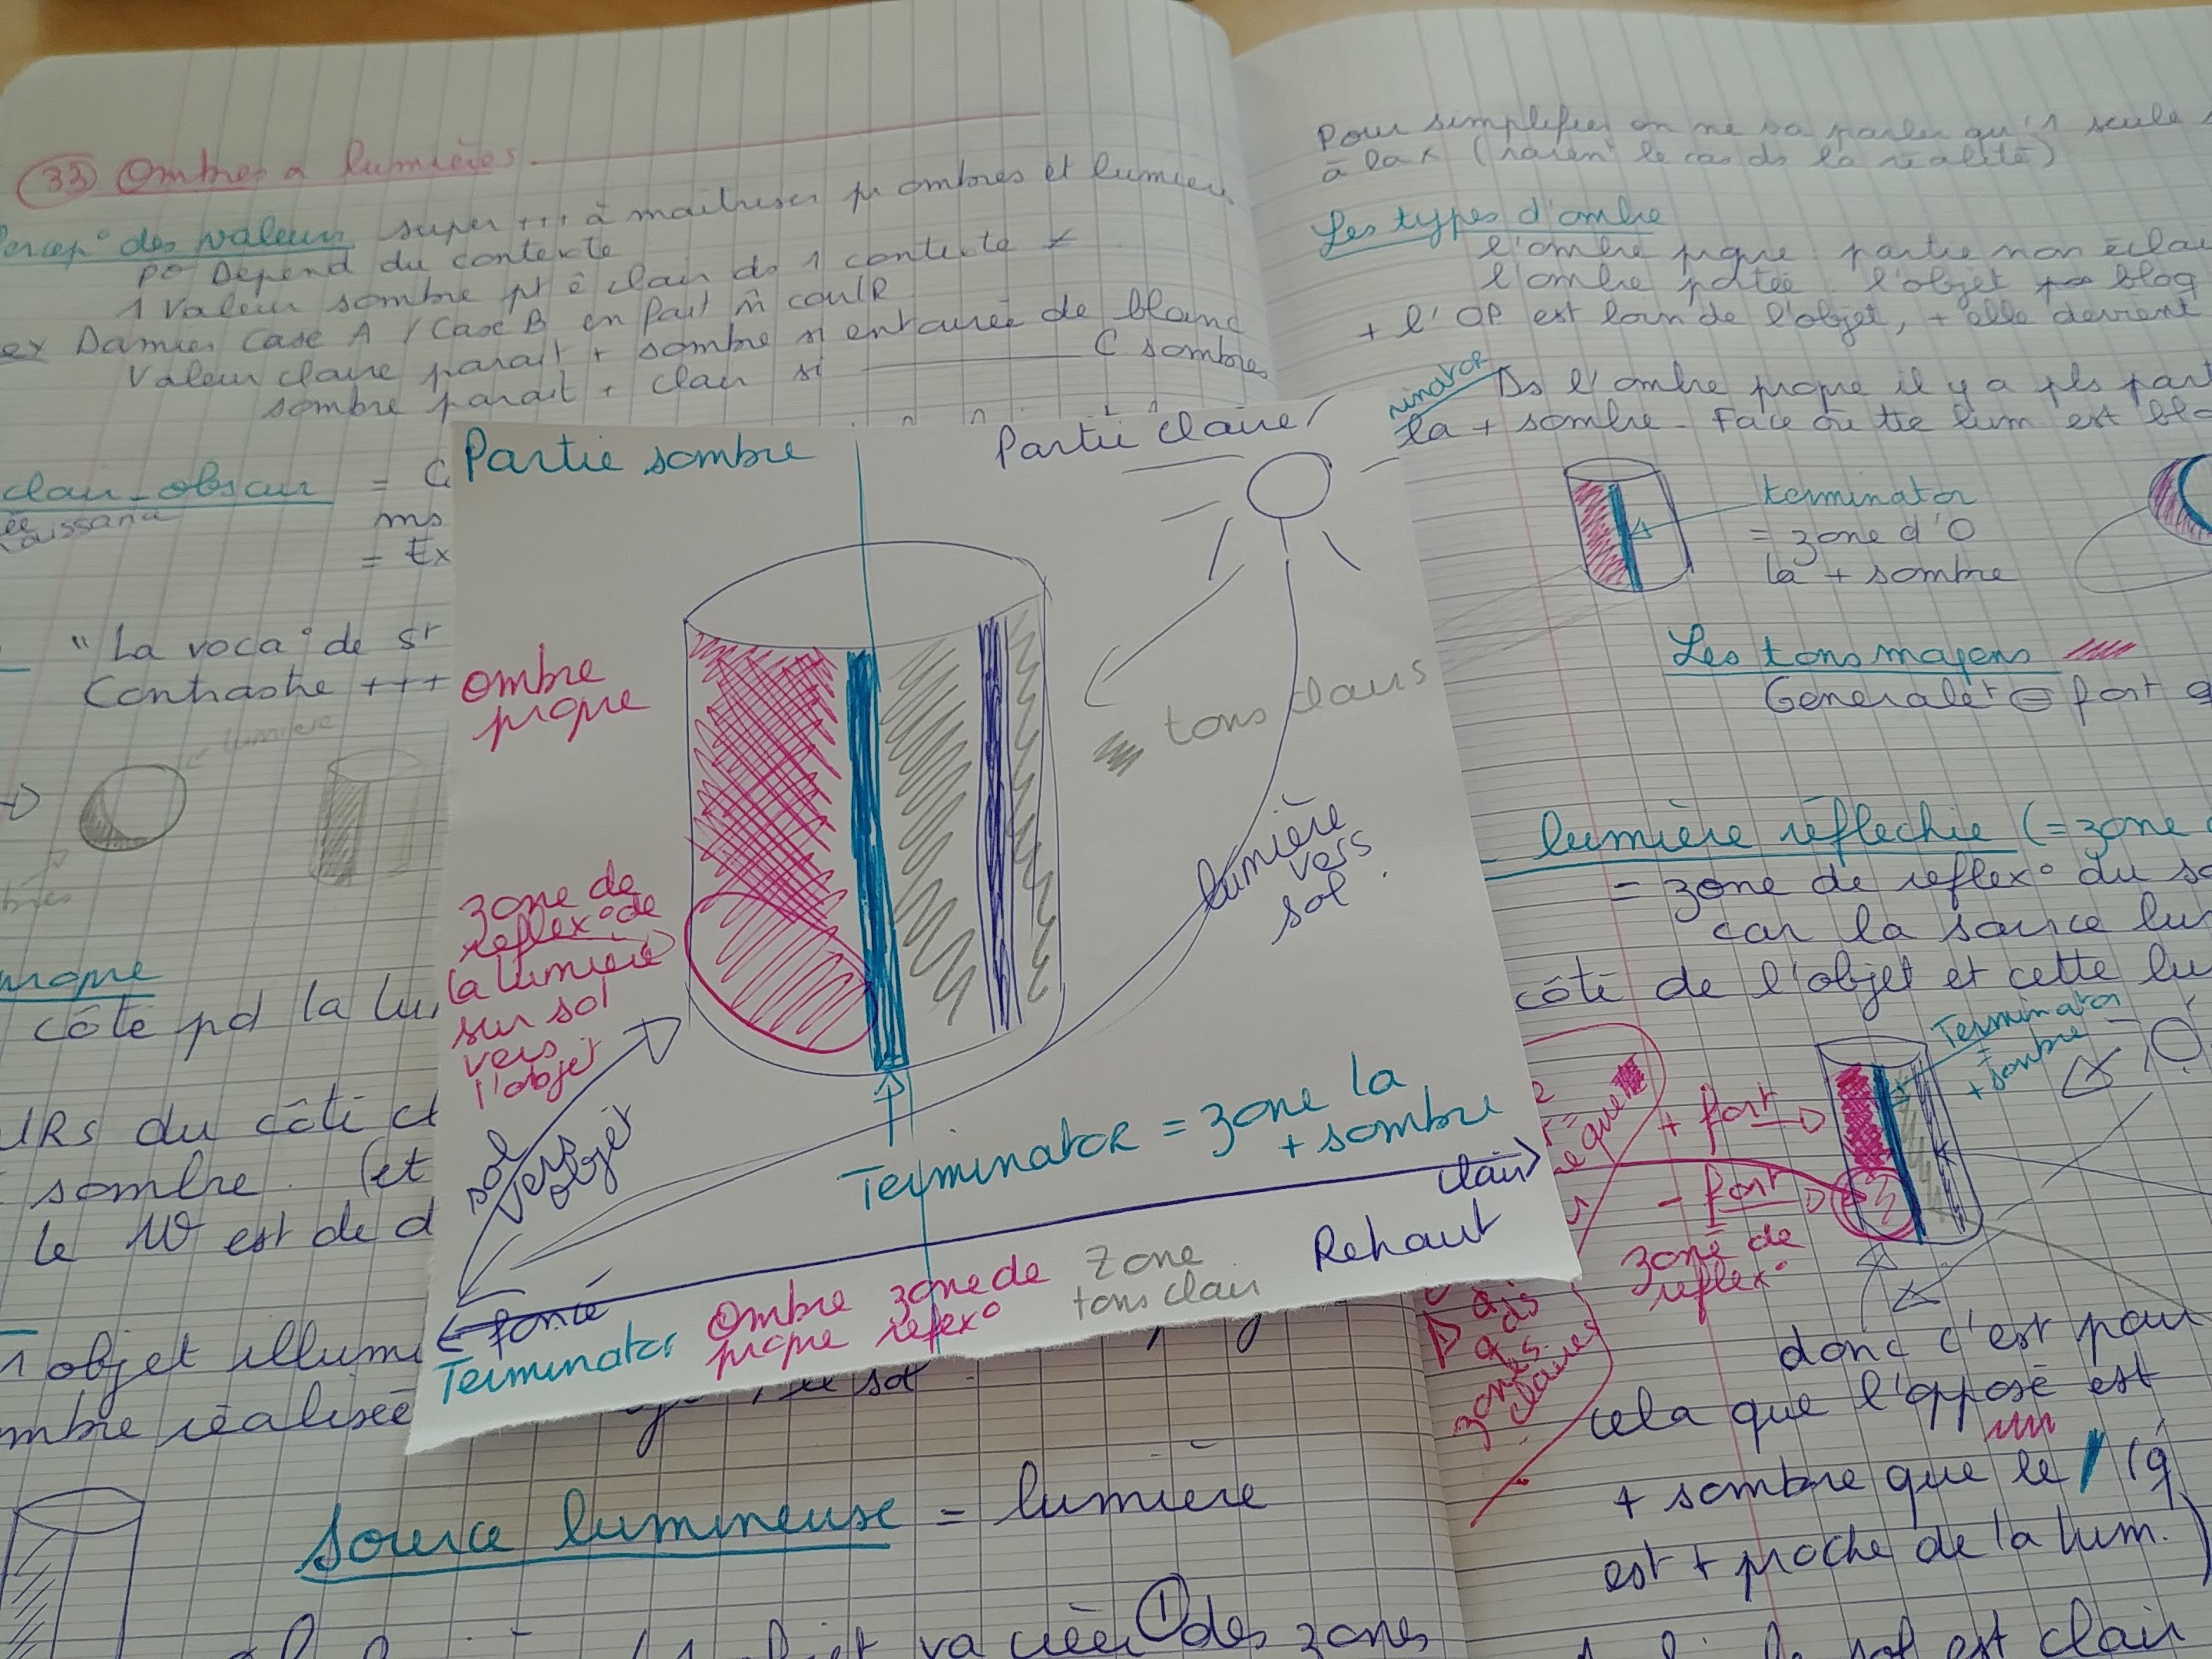 33 Ombres a lumières
Percep° des valeurs super +++ à maîtriser pr ombres et lumière
Dépend du contexte
1 Valeur sombre pt ê clair ds 1 contexte
ex Damier Case A / Case B en fait m̂ coulR
Valeur claire parait + sombre si entourée de blanc
sombre parait + clair si C sombres
clair-obscur = C
ms
= Ex
"La voca° de St
Contraste +++
lumière
propre
côté pd la lu
URs du côté
sombre. (et
le est de d
1 objet illumi
mbre réalisée
sol
Source lumineuse = lumière
va créer ① des zones
Partie sombre
Partie claire
Ombre
propre
tons clairs
zone de
reflex° de
la lumière
sur sol
vers
l'objet
lumière
vers
sol
sol
vers
objet
Terminator = zone la
+ sombre
clair
foncé
Terminator
Ombre
propre
zone de
reflex°
Zone
tons clair
Rehaut
Pour simplifier on ne va parler qu'1 seule
à la x (rarent le cas ds la réalité)
Les types d'ombre
l'ombre propre partie non éclai
l'ombre portée l'objet bloq
+ l'OP est loin de l'objet, + elle devient
minator
Ds l'ombre propre il y a pls part
la + sombre - Face où tte lum est blo
terminator
= zone d'O
la + sombre
Les tons moyens
Generalet ⊖ fort
lumière réfléchie (= zone
= zone de reflex° du so
car la source lu
côté de l'objet et cette lu
Terminator
=
+ sombre
+ fort
- fort
zone de
reflex°
zones
claires
donc c'est pour
cela que l'opposé est
+ sombre que le
est + proche de la lum.)
sol est clair